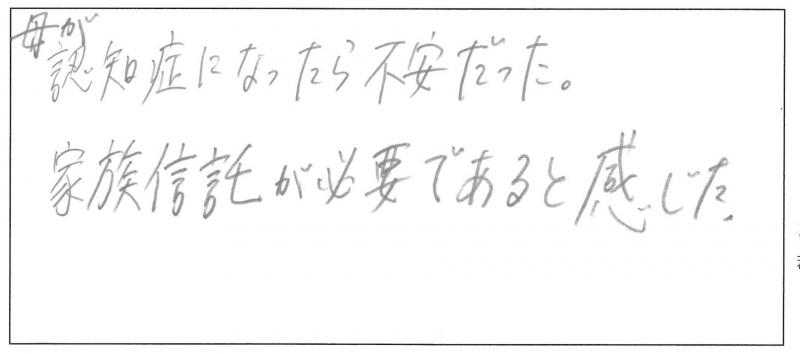 母が認知症になったら不安だった。
家族信託が必要であると感じた.